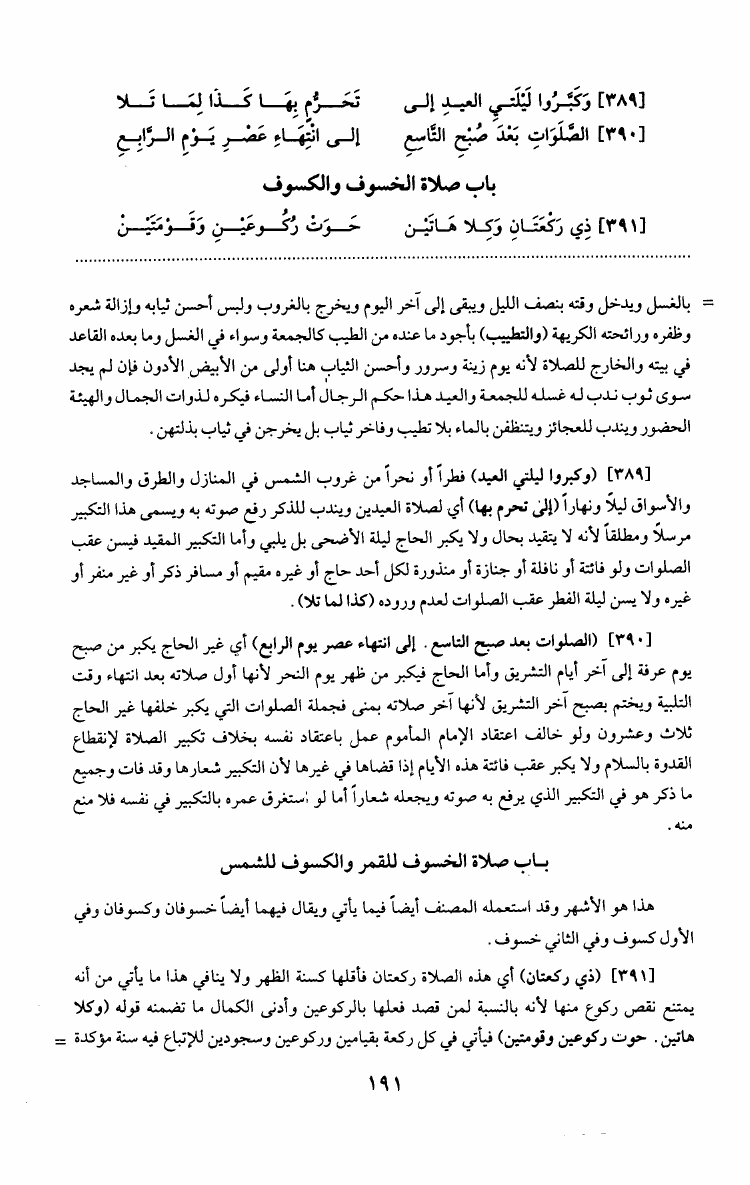 [٣٨٩] وَكَبَّرُوا لَيْلَتي العيـدِ إلى تَحَـــرُّمٍ بِهَـــا كَـــذَا لِمَـــا تَـــلا
[٣٩٠] الصَّلَوَاتِ بَعْدَ صُبْحِ التَّاسِعِ إلــى انْتِهَـاءِ عَصْـرِ يَـوْمِ الـرَّابِـعِ
باب صلاة الخسوف والكسوف
[٣٩١] ذِي رَكْعَتَـانِ وَكِـلا هَـاتَيْـن حَــوَتْ رُكُــوعَيْــنِ وَقَــوْمَتَيْــنْ
= بالغسل ويدخل وقته بنصف الليل ويبقى إلى آخر اليوم ويخرج بالغروب ولبس أحسن ثيابه وإزالة شعره
وظفره ورائحته الكريهة (والتطييب) بأجود ما عنده من الطيب كالجمعة وسواء في الغسل وما بعده القاعد
في بيته والخارج للصلاة لأنه يوم زينة وسرور وأحسن الثياب هنا أولى من الأبيض الأدون فإن لم يجد
سوى ثوب ندب له غسله للجمعة والعيد هذا حكم الرجال أما النساء فيكره لذوات الجمال والهيئة
الحضور ويندب للعجائز ويتنظفن بالماء بلا تطيب وفاخر ثياب بل يخرجن في ثياب بذلتهن.
[٣٨٩] (وكبروا ليلتي العيد) فطراً أو نحراً من غروب الشمس في المنازل والطرق والمساجد
والأسواق ليلاً ونهاراً (إلىٰ تحرم بها) أي لصلاة العيدين ويندب للذكر رفع صوته به ويسمى هذا التكبير
مرسلاً ومطلقاً لأنه لا يتقيد بحال ولا يكبر الحاج ليلة الأضحى بل يلبي وأما التكبير المقيد فيسن عقب
الصلوات ولو فائتة أو نافلة أو جنازة أو منذورة لكل أحد حاج أو غيره مقيم أو مسافر ذكر أو غير منفر أو
غيره ولا يسن ليلة الفطر عقب الصلوات لعدم وروده (كذا لما تلا).
[٣٩٠] (الصلوات بعد صبح التاسع. إلى انتهاء عصر يوم الرابع) أي غير الحاج يكبر من صبح
يوم عرفة إلى آخر أيام التشريق وأما الحاج فيكبر من ظهر يوم النحر لأنها أول صلاته بعد انتهاء وقت
التلبية ويختم بصبح آخر التشريق لأنها آخر صلاته بمنى فجملة الصلوات التي يكبر خلفها غير الحاج
ثلاث وعشرون ولو خالف اعتقاد الإمام المأموم عمل باعتقاد نفسه بخلاف تكبير الصلاة لإنقطاع
القدوة بالسلام ولا يكبر عقب فائتة هذه الأيام إذا قضاها في غيرها لأن التكبير شعارها وقد فات وجميع
ما ذكر هو في التكبير الذي يرفع به صوته ويجعله شعاراً أما لو إستغرق عمره بالتكبير في نفسه فلا منع
منه.
بـاب صلاة الخسوف للقمر والكسوف للشمس
هذا هو الأشهر وقد استعمله المصنف أيضاً فيما يأتي ويقال فيهما أيضاً خسوفان وكسوفان وفي
الأول كسوف وفي الثاني خسوف.
[٣٩١] (ذي ركعتان) أي هذه الصلاة ركعتان فأقلها كسنة الظهر ولا ينافي هذا ما يأتي من أنه
يمتنع نقص ركوع منها لأنه بالنسبة لمن قصد فعلها بالركوعين وأدنى الكمال ما تضمنه قوله (وكلا
هاتين. حوت ركوعين وقومتين) فيأتي في كل ركعة بقيامين وركوعين وسجودين للإتباع فيه سنة مؤكدة =
١٩١